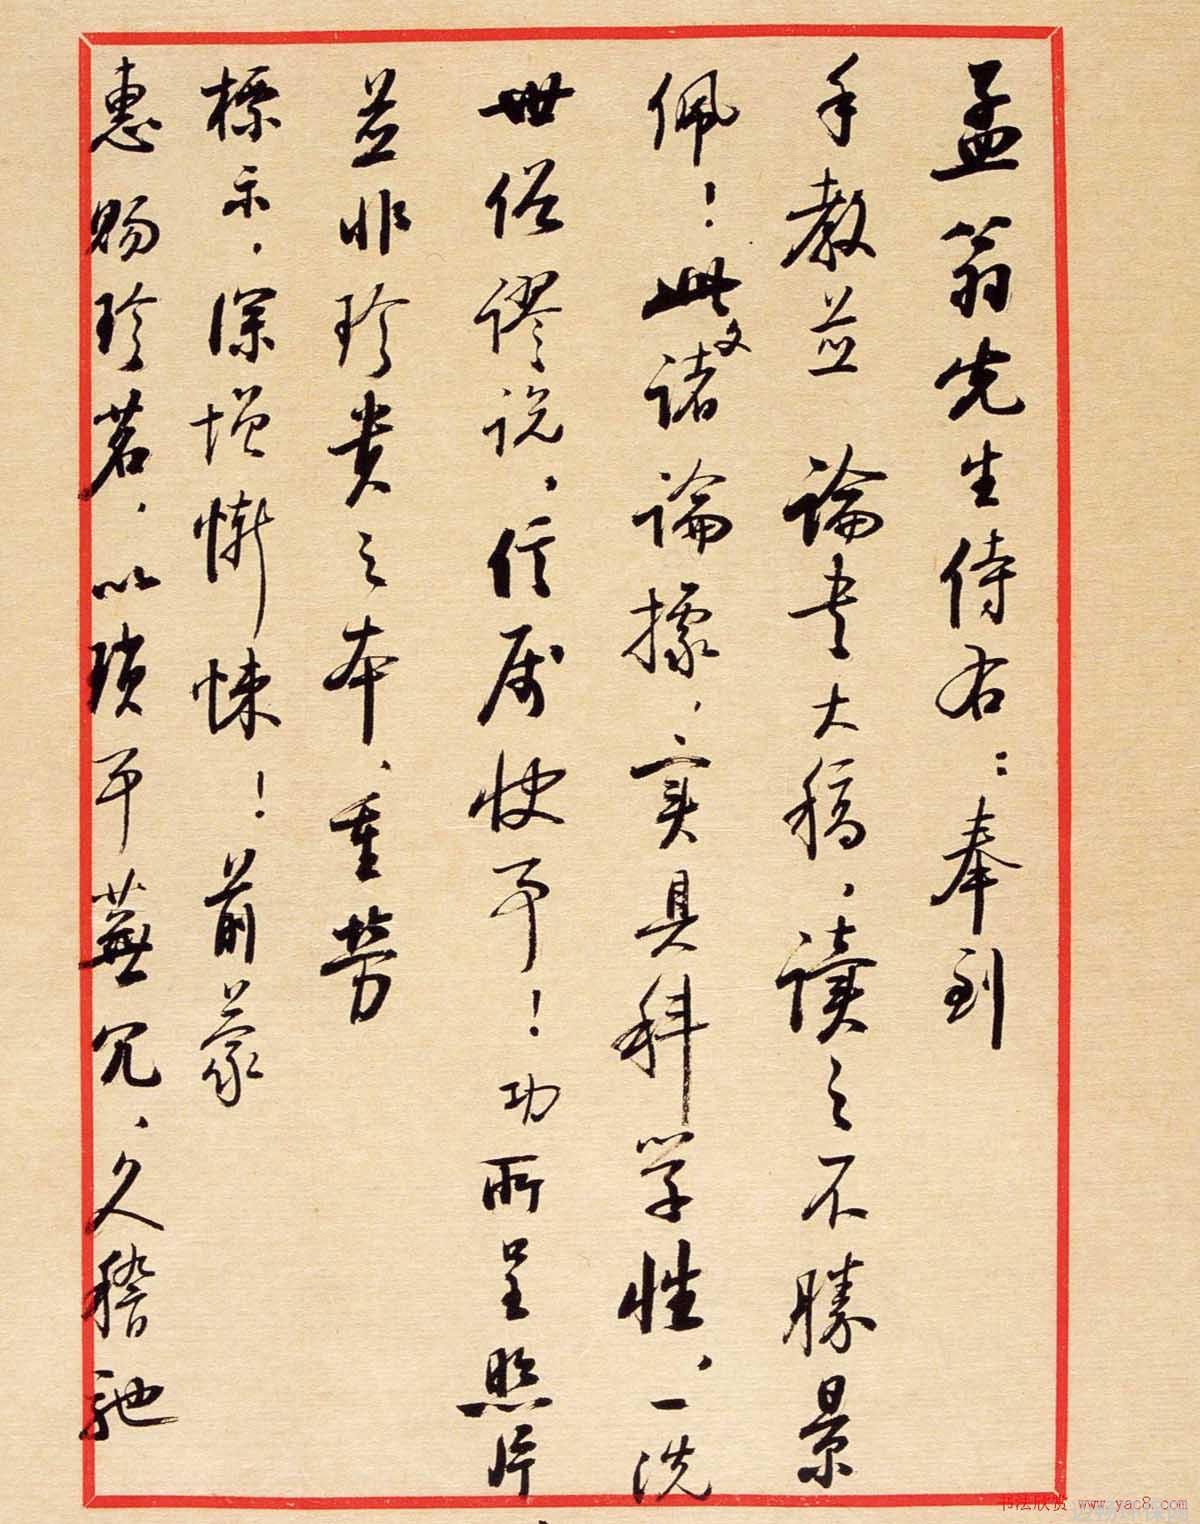 孟翁先生侍右：奉到
手教並 論書大稿，讀之不勝景
佩！此文諸論據，實具科學性，一洗
世俗謬説，信属快事！功所呈照片
並非珍貴之本，重勞
標示，深增慚悚！前蒙
惠賜珍茗，以瑣事蕪冗，久稽馳
书法欣赏 www.yac8.com